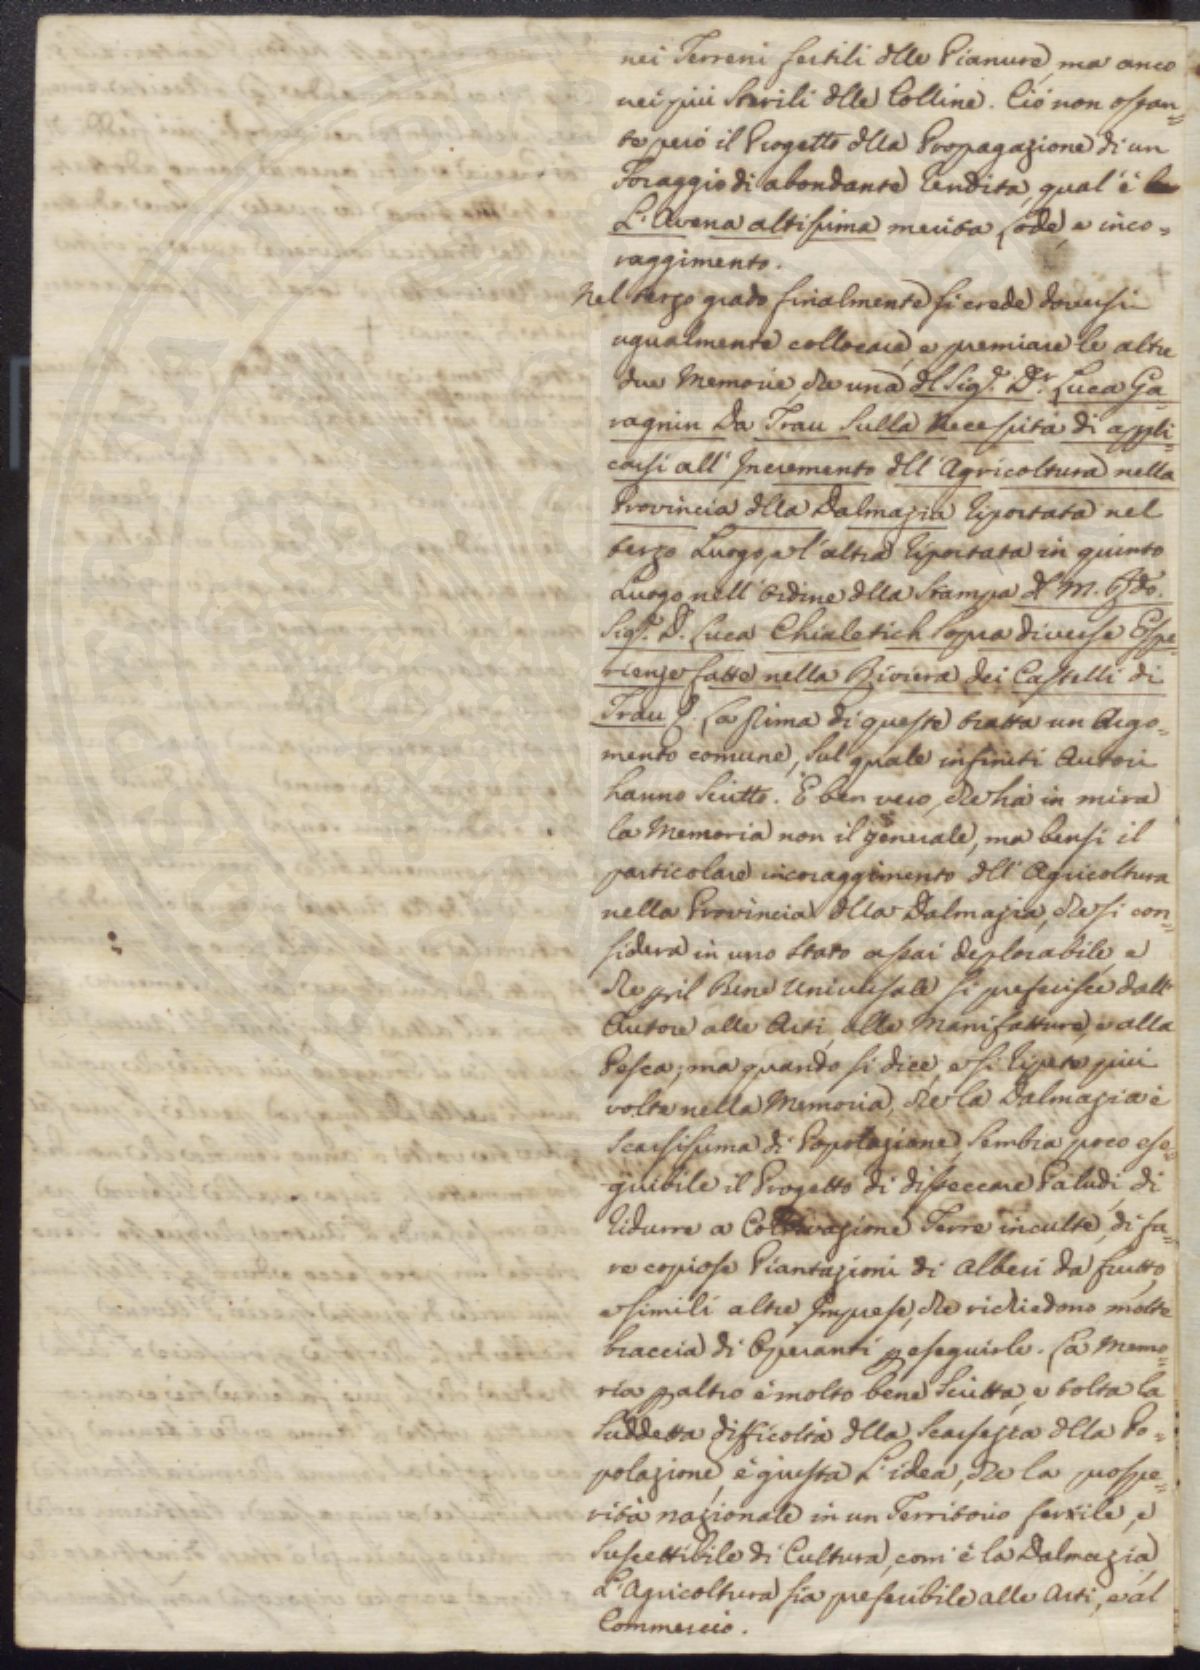 nei Terreni fertili dlle Pianure, ma anco
nei più sterili dlle Colline. Ciò non ostan=
te però il Progetto dlla Propagazione di un
Foraggio di abondante Rendita, qual'è
L'Avena altissima merita lode, e inco=
raggimento.
Nel terzo grado finalmente si crede doversi
ugualmente collocare, e premiare le altre
due Memorie, che una dl Sigr. Dr. Luca Ga=
ragnin Da Trau Sulla Necessità di appli=
carsi all' Incremento dll' Agricoltura nella
Provincia dlla Dalmazia riportata nel
terzo Luogo, e l'altra riportata in quinto
Luogo nell' Ordine dlla Stampa dl M. Rdo.
Sigr. D. Luca Chialetich Sopra diverse Espe=
rienze fatte nella Riviera dei Castelli di
Trau. La prima di queste tratta un Argo=
mento comune, sul quale infiniti Autori
hanno scritto. È ben vero, che hà in mira
la Memoria non il generale, ma bensì il
particolare incoraggimento dll' Agricoltura
nella Provincia dlla Dalmazia, che si con=
sidera in uno stato assai deplorabile, e
che pril Bene Universale si preferisce dall'
Autore alle Arti, alle Manifatture, e alla
Pesca; ma quando si dice, e si ripete più
volte nella Memoria, che la Dalmazia è
scarsissima di Popolazione, sembra poco ese=
guibile il Progetto di disseccare Paludi, di
ridurre a Coltivazione Terre inculte, di fa=
re copiose Piantazioni di Alberi da frutto,
e simili altre Imprese, che richiedono molte
braccia di Operanti p eseguirle. La Memo=
ria p altro è molto bene scritta, e tolta la
suddetta difficoltà dlla Scarsezza dlla Po=
polazione, è giusta L'idea, che la prospe=
rità nazionale in un Territorio fertile, e
suscettibile di Cultura, com' è la Dalmazia,
L'Agricoltura sia preferibile alle Arti, e al
Commercio.